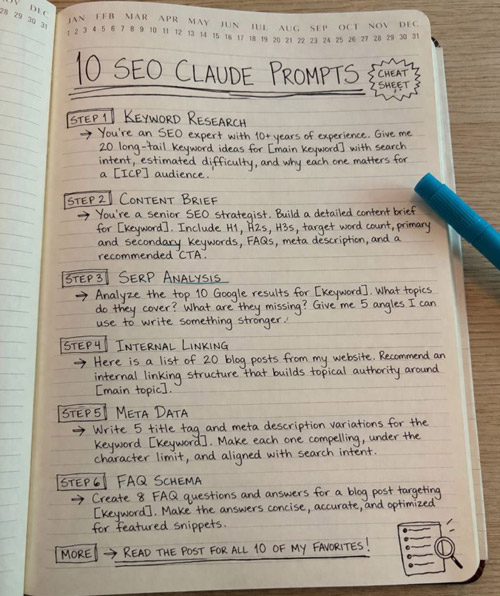 NOV DEC
28 29 30 31
JAN FEB MAR APR MAY JUN JUL AUG SEP OCT NOV DEC
1 2 3 4 5 6 7 8 9 10 11 12 13 14 15 16 17 18 19 20 21 22 23 24 25 26 27 28 29 30 31
10 SEO CLAUDE PROMPTS
CHEAT
SHEET
STEP 1 KEYWORD RESEARCH
→ You're an SEO expert with 10+ years of experience. Give me
20 long-tail keyword ideas for [main keyword] with search
intent, estimated difficulty, and why each one matters for
a [ICP] audience.
STEP 2 CONTENT BRIEF
→ You're a senior SEO strategist. Build a detailed content brief
for [keyword]. Include H1, H2s, H3s, target word count, primary
and secondary keywords, FAQs, meta description, and a
recommended CTA.
STEP 3 SERP ANALYSIS
→ Analyze the top 10 Google results for [keyword]. What topics
do they cover? What are they missing? Give me 5 angles I can
use to write something stronger.
STEP 4 INTERNAL LINKING
→ Here is a list of 20 blog posts from my website. Recommend an
internal linking structure that builds topical authority around
[main topic].
STEP 5 META DATA
→ Write 5 title tag and meta description variations for the
keyword [keyword]. Make each one compelling, under the
character limit, and aligned with search intent.
STEP 6 FAQ SCHEMA
→ Create 8 FAQ questions and answers for a blog post targeting
[keyword]. Make the answers concise, accurate, and optimized
for featured snippets.
MORE → READ THE POST FOR ALL 10 OF MY FAVORITES!